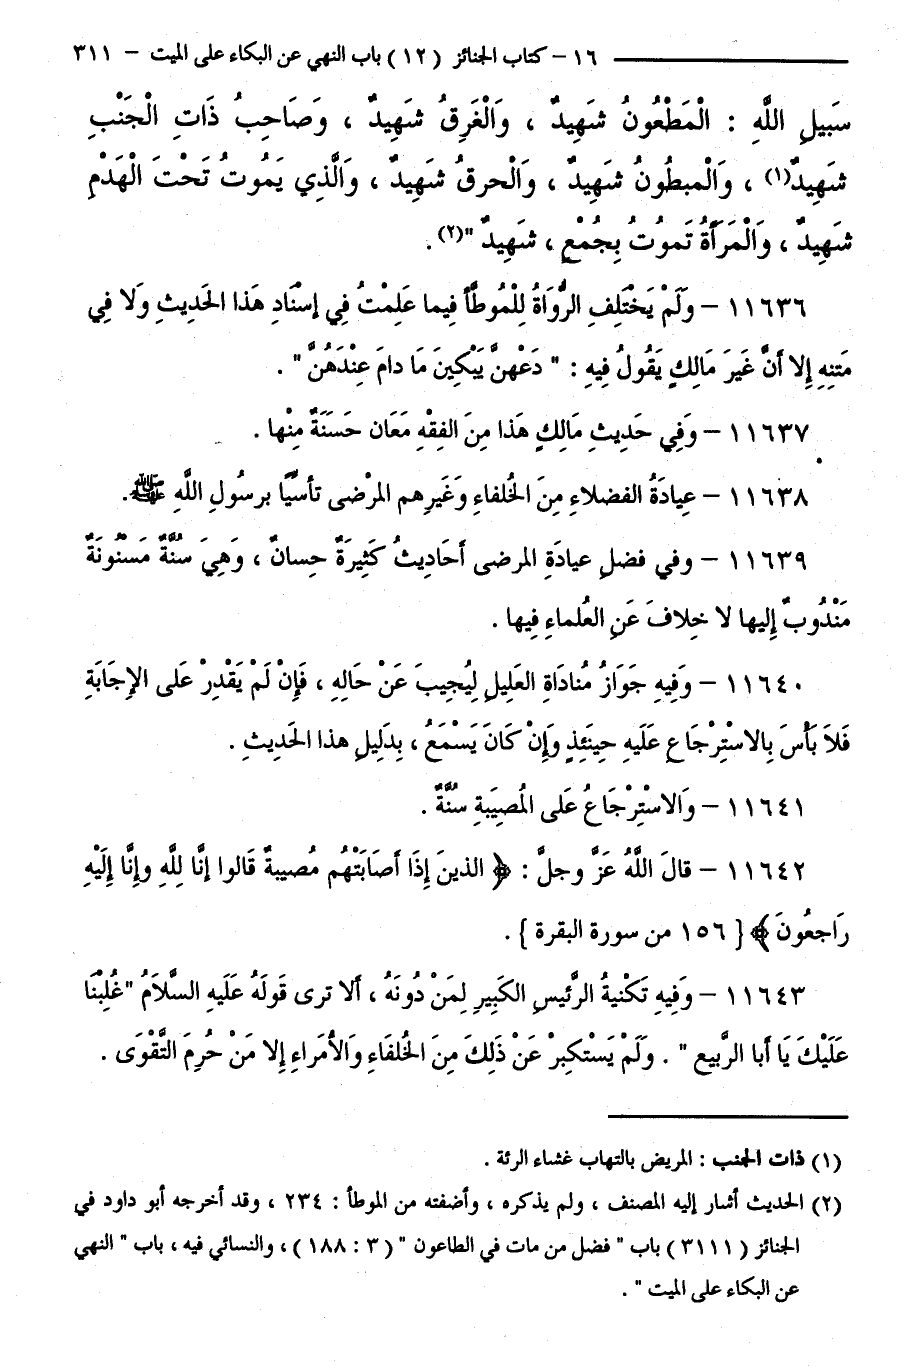 ١٦ – كتاب الجنائز (١٢) باب النهي عن البكاء على الميت – ٣١١
سَبِيلِ اللَّهِ : الْمَطْعُونُ شَهِيدٌ ، وَالْغَرِقُ شَهِيدٌ ، وَصَاحِبُ ذَاتِ الْجَنْبِ
شَهِيدٌ(١) ، وَالْمبطُونُ شَهِيدٌ ، وَالْحرِقُ شَهِيدٌ ، وَالَّذِي يَمُوتُ تَحْتَ الْهَدْمِ
شَهِيدٌ ، وَالْمَرَأَةُ تَموتُ بِجُمْعٍ ، شَهِيدٌ "(٢) .
١١٦٣٦ – وَلَمْ يَخْتَلِفِ الرُّوَاةُ لِلْمُوطَّأ فِيما عَلِمْتُ فِي إسْنَادِ هَذا الحَدِيثِ وَلا فِي
مَتنِهِ إلا أنَّ غَيرَ مَالِكٍ يَقُولُ فِيهِ : " دَعْهنَّ يَبْكِينَ مَا دامَ عِنْدَهُنَّ " .
١١٦٣٧ – وَفِي حَدِيثِ مَالِكٍ هَذا مِنَ الفِقْهِ مَعَان حَسَنَةٌ مِنْها .
١١٦٣٨ – عِيادَةُ الفضلاءِ مِنَ الخُلفاءِ وَغَيرِهم المرْضى تأسيًّا برسُولِ اللَّهِ ﷺ.
١١٦٣٩ – وفي فضلِ عيادَةِ المرضى أحَادِيثُ كَثِيرَةٌ حِسانٌ ، وَهِيَ سُنَّةٌ مَسْنُونَةٌ
مَنْدُوبٌ إليها لا خِلافَ عَنِ العُلماءِ فِيها .
١١٦٤٠ – وَفِيهِ جَوَازُ مُنادَاةِ العَلِيلِ لِيُجيبَ عَنْ حَالِهِ ، فَإنْ لَمْ يَقْدِرْ عَلى الإجَابَةِ
فَلاَ بَأْسَ بِالاسْتِرْجَاعِ عَلَيهِ حِينَئِذٍ وَإنْ كَانَ يَسْمَعُ ، بِدَلِيلِ هذا الحَدِيثِ .
١١٦٤١ – وَالاسْتِرْجَاعُ عَلى المُصِيَبةِ سُنَّةٌ .
١١٦٤٢ – قالَ اللَّهُ عَزَّ وجلَّ : ﴿ الذينَ إذَا أصَابَتْهُم مُصيبةٌ قَالوا إنَّا لِلَّهِ وإنَّا إلَيْهِ
رَاجعُونَ ﴾ { ١٥٦ من سورة البقرة } .
١١٦٤٣ – وَفِيهِ تَكْنِيةُ الرَّئيسِ الكَبِيرِ لِمَنْ دُونَهُ ، ألا ترى قَولَهُ عَلَيهِ السَّلامُ "غُلِبْنَا
عَلَيْكَ يَا أبا الرَّبيع " . وَلَمْ يَسْتكبِرْ عَنْ ذَلِكَ مِنَ الخُلفَاءِ وَالأُمَراءِ إلا مَنْ حُرِمَ التَّقْوَى .
(١) ذات الجنب : المريض بالتهاب غشاء الرئة .
(٢) الحديث أشار إليه المصنف ، ولم يذكره ، وأضفته من الموطأ : ٢٣٤ ، وقد أخرجه أبو داود في
الجنائز ( ٣١١١ ) باب " فضل من مات في الطاعون " ( ٣ : ١٨٨ ) ، والنسائي فيه ، باب " النهي
عن البكاء على الميت " .